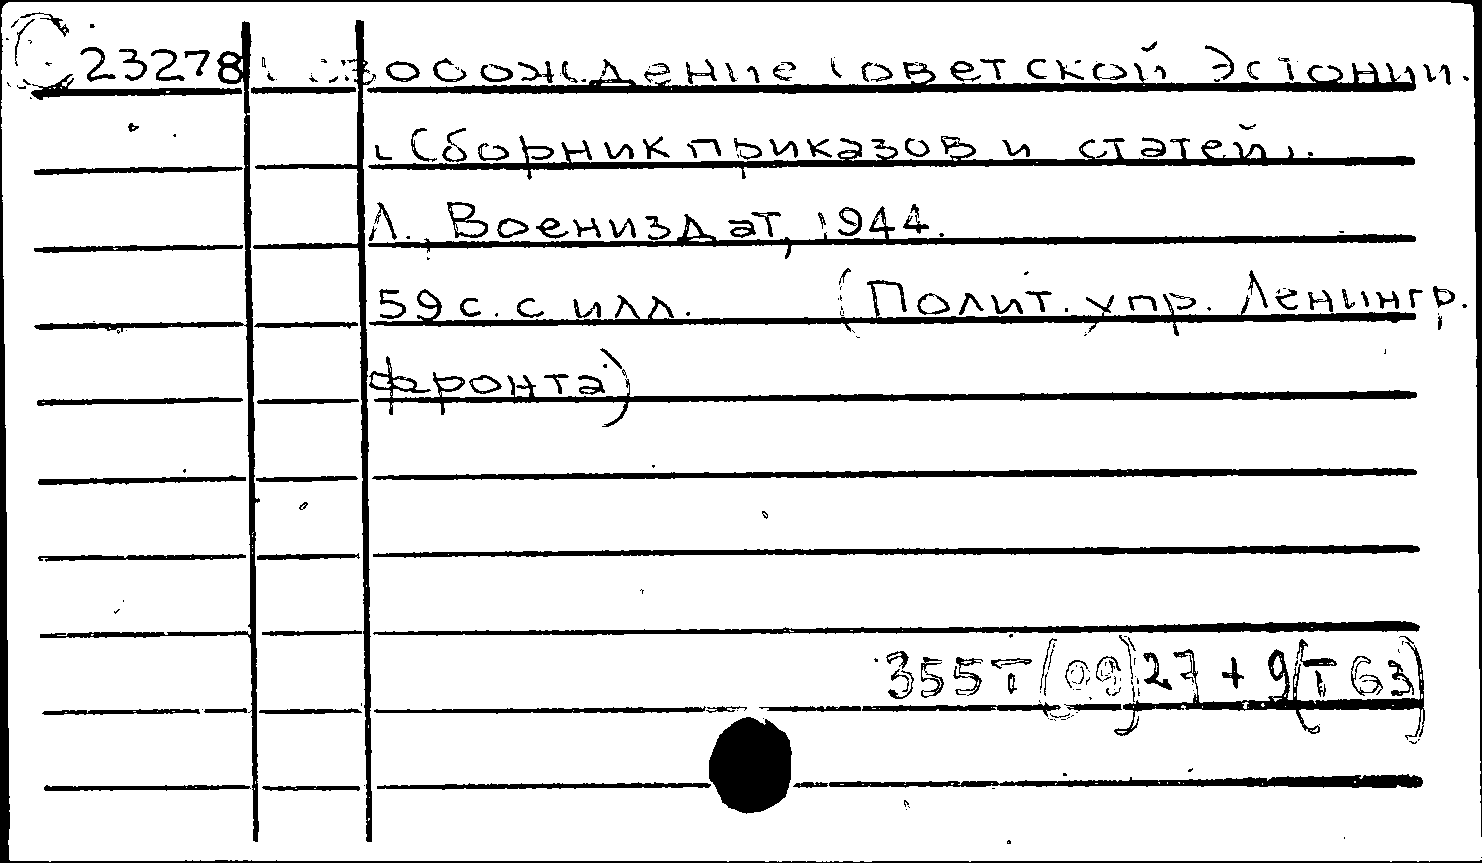 23278 Освобождение Советской Эстонии.
(Сборник приказов и статей).
Л., Воениздат, 1944.
59 с. с илл. (Полит. упр. Ленингр.
фронта)
355T(09)27 + 9(T63)